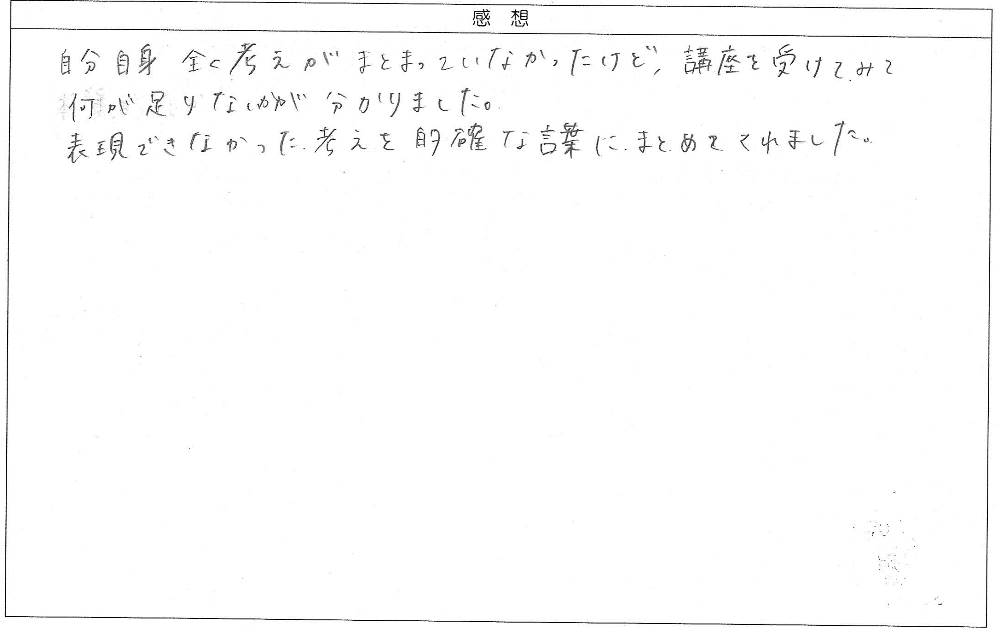 感想
自分自身 全く考えがまとまっていなかったけど、講座を受けてみて
何が足りないかが分かりました。
表現できなかった考えを的確な言葉にまとめてくれました。